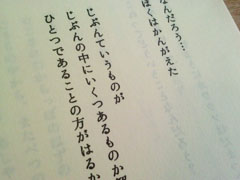 なんだろう…
ぼくはかんがえた
じぶんていうものが
じぶんの中にいくつあるものか
ひとつであることの方がはるか